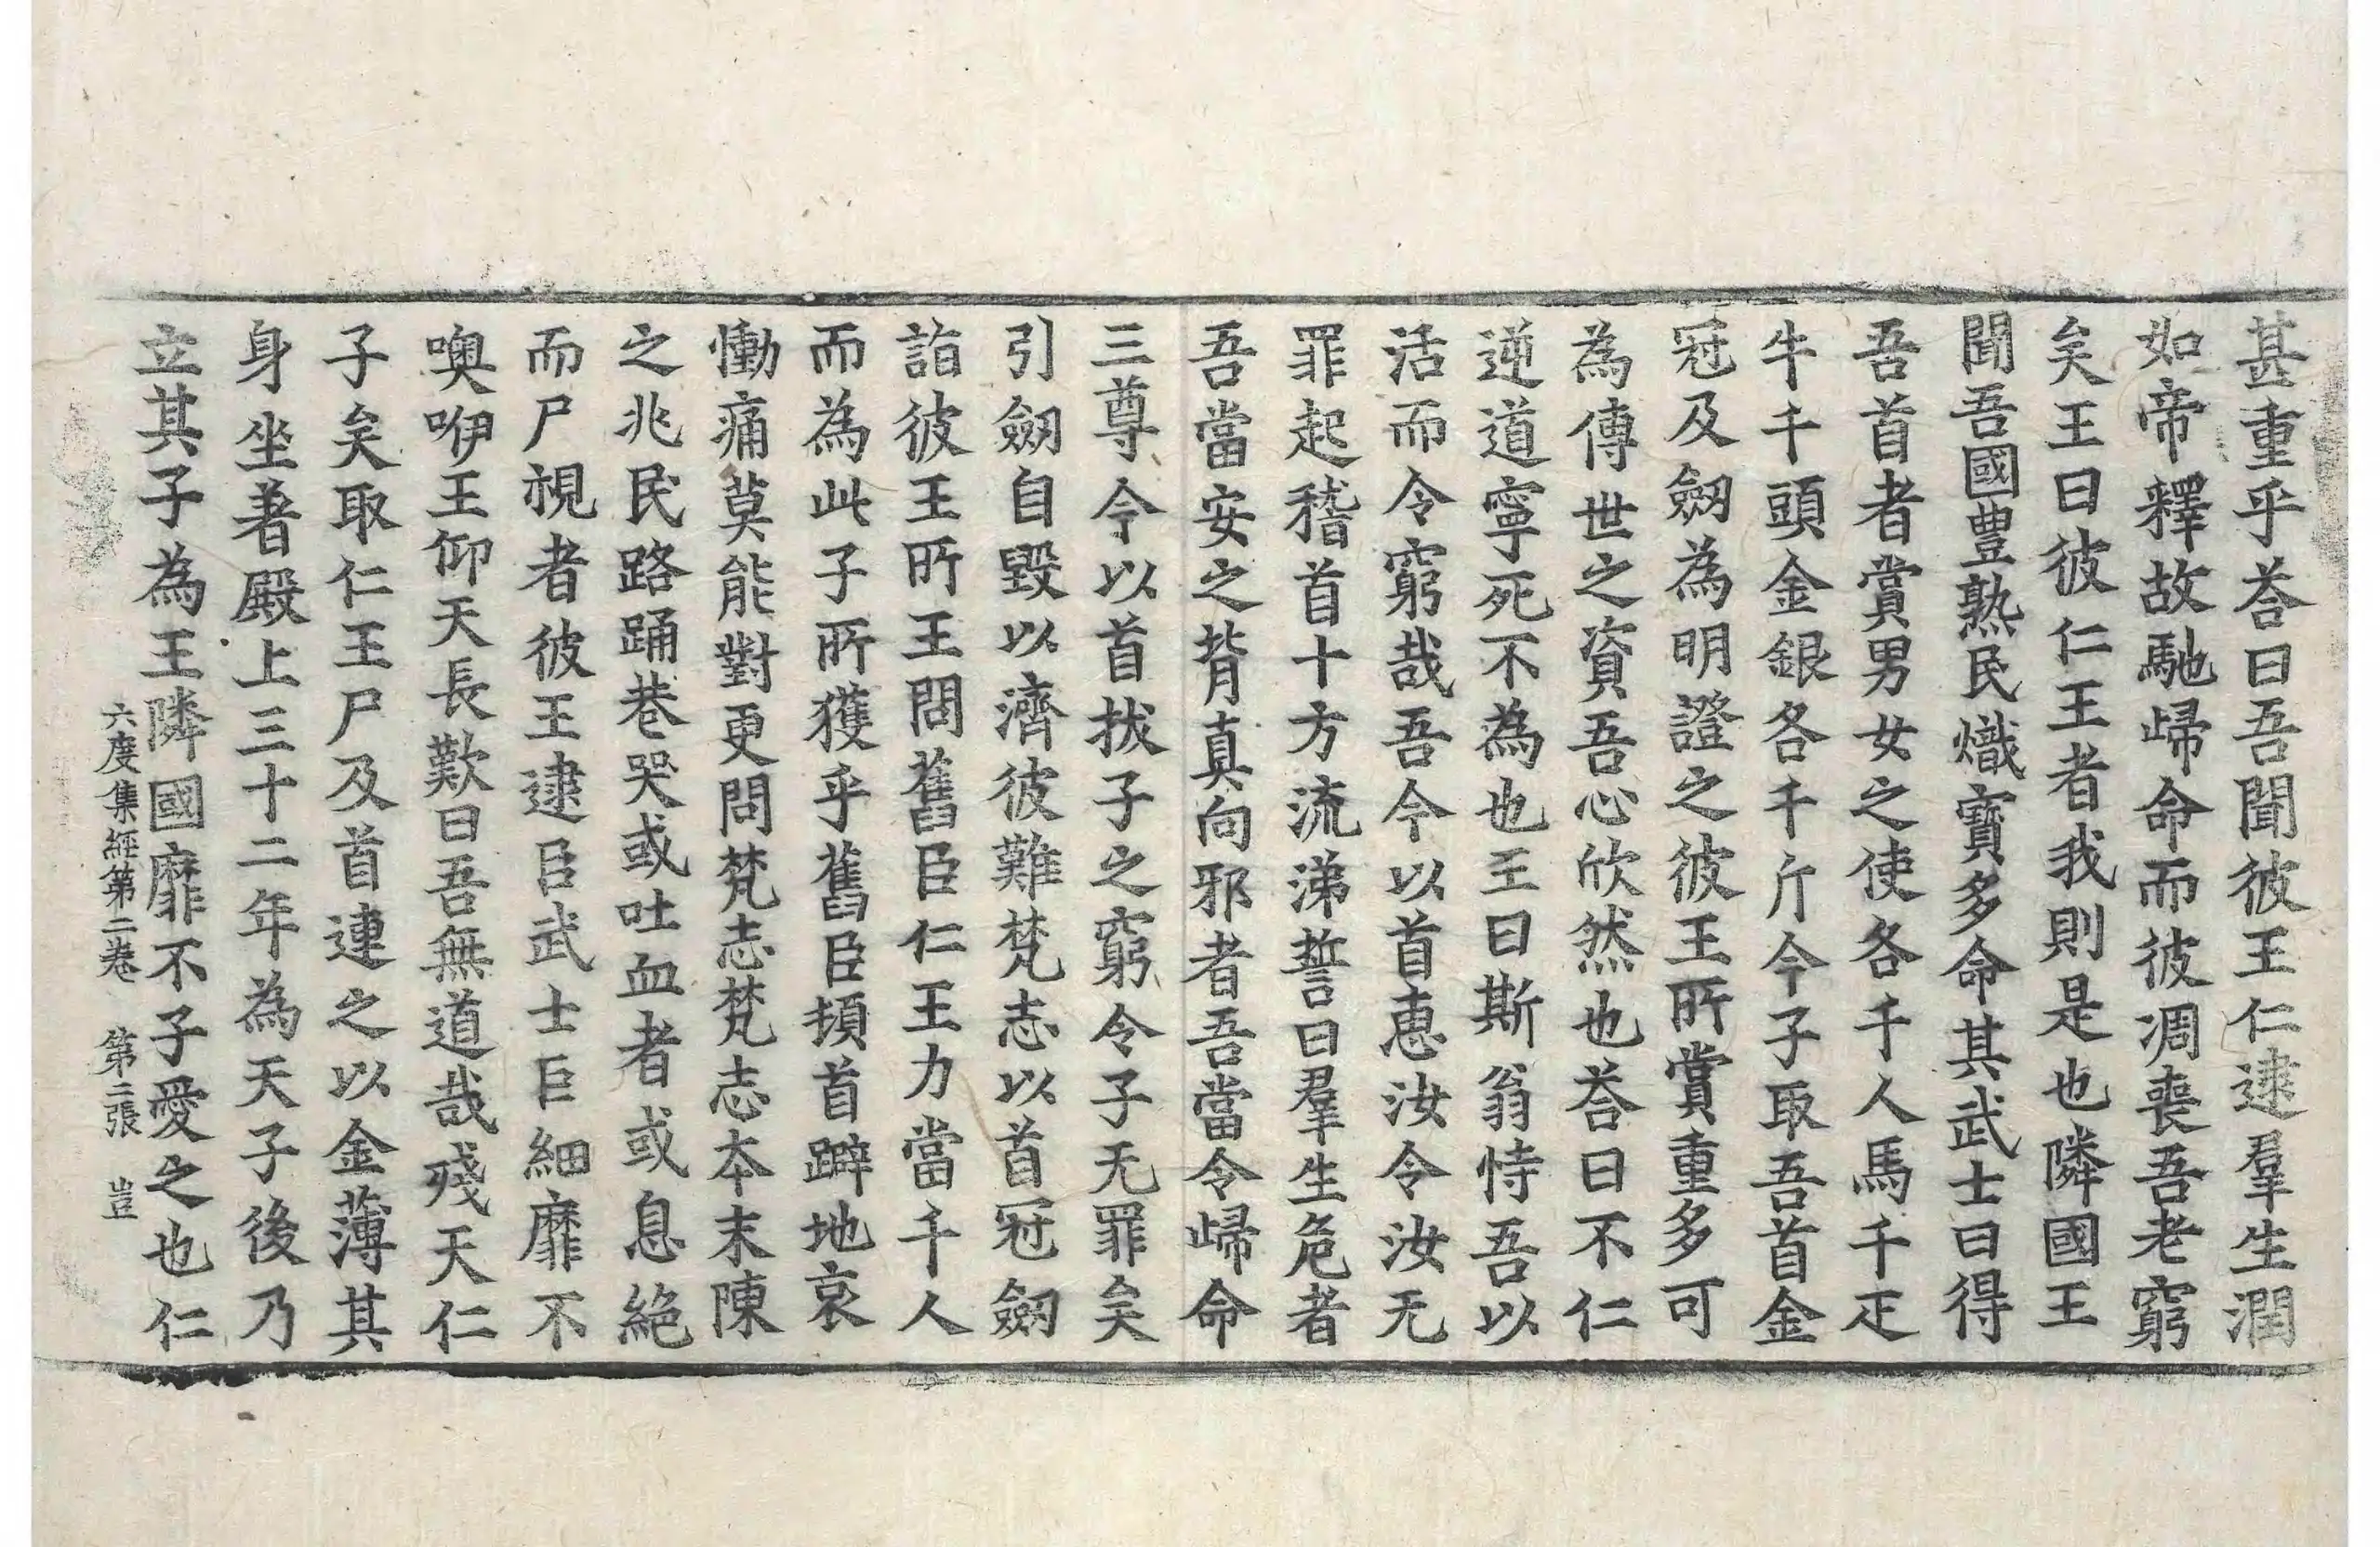 甚重乎荅曰吾聞彼王仁逮羣生潤
如帝釋故馳歸命而彼凋喪吾老窮
矣王曰彼仁王者我則是也隣國王
聞吾國豊熟民熾寶多命其武士曰得
吾首者賞男女之使各千人馬千疋
牛千頭金銀各千斤今子取吾首金
冠及劒為明證之彼王所賞重多可
為傳世之資吾心欣然也荅曰不仁
逆道寧死不為也王曰斯翁恃吾以
活而令窮哉吾今以首惠汝令汝无
罪起稽首十方流涕誓曰羣生危者
吾當安之背真向邪者吾當令歸命
三尊今以首拔子之窮令子无罪矣
引劒自毀以濟彼難梵志以首冠劒
詣彼王所王問舊臣仁王力當千人
而為此子所獲乎舊臣頓首躃地哀
慟痛莫能對更問梵志梵志本末陳
之兆民路踊巷哭或吐血者或息絕
而尸視者彼王逮臣武士巨細靡不
噢咿王仰天長歎曰吾無道哉殘天仁
子矣取仁王尸及首連之以金薄其
身坐著殿上三十二年為天子後乃
立其子為王隣國靡不子愛之也仁
六度集經第二卷　第二張　豈